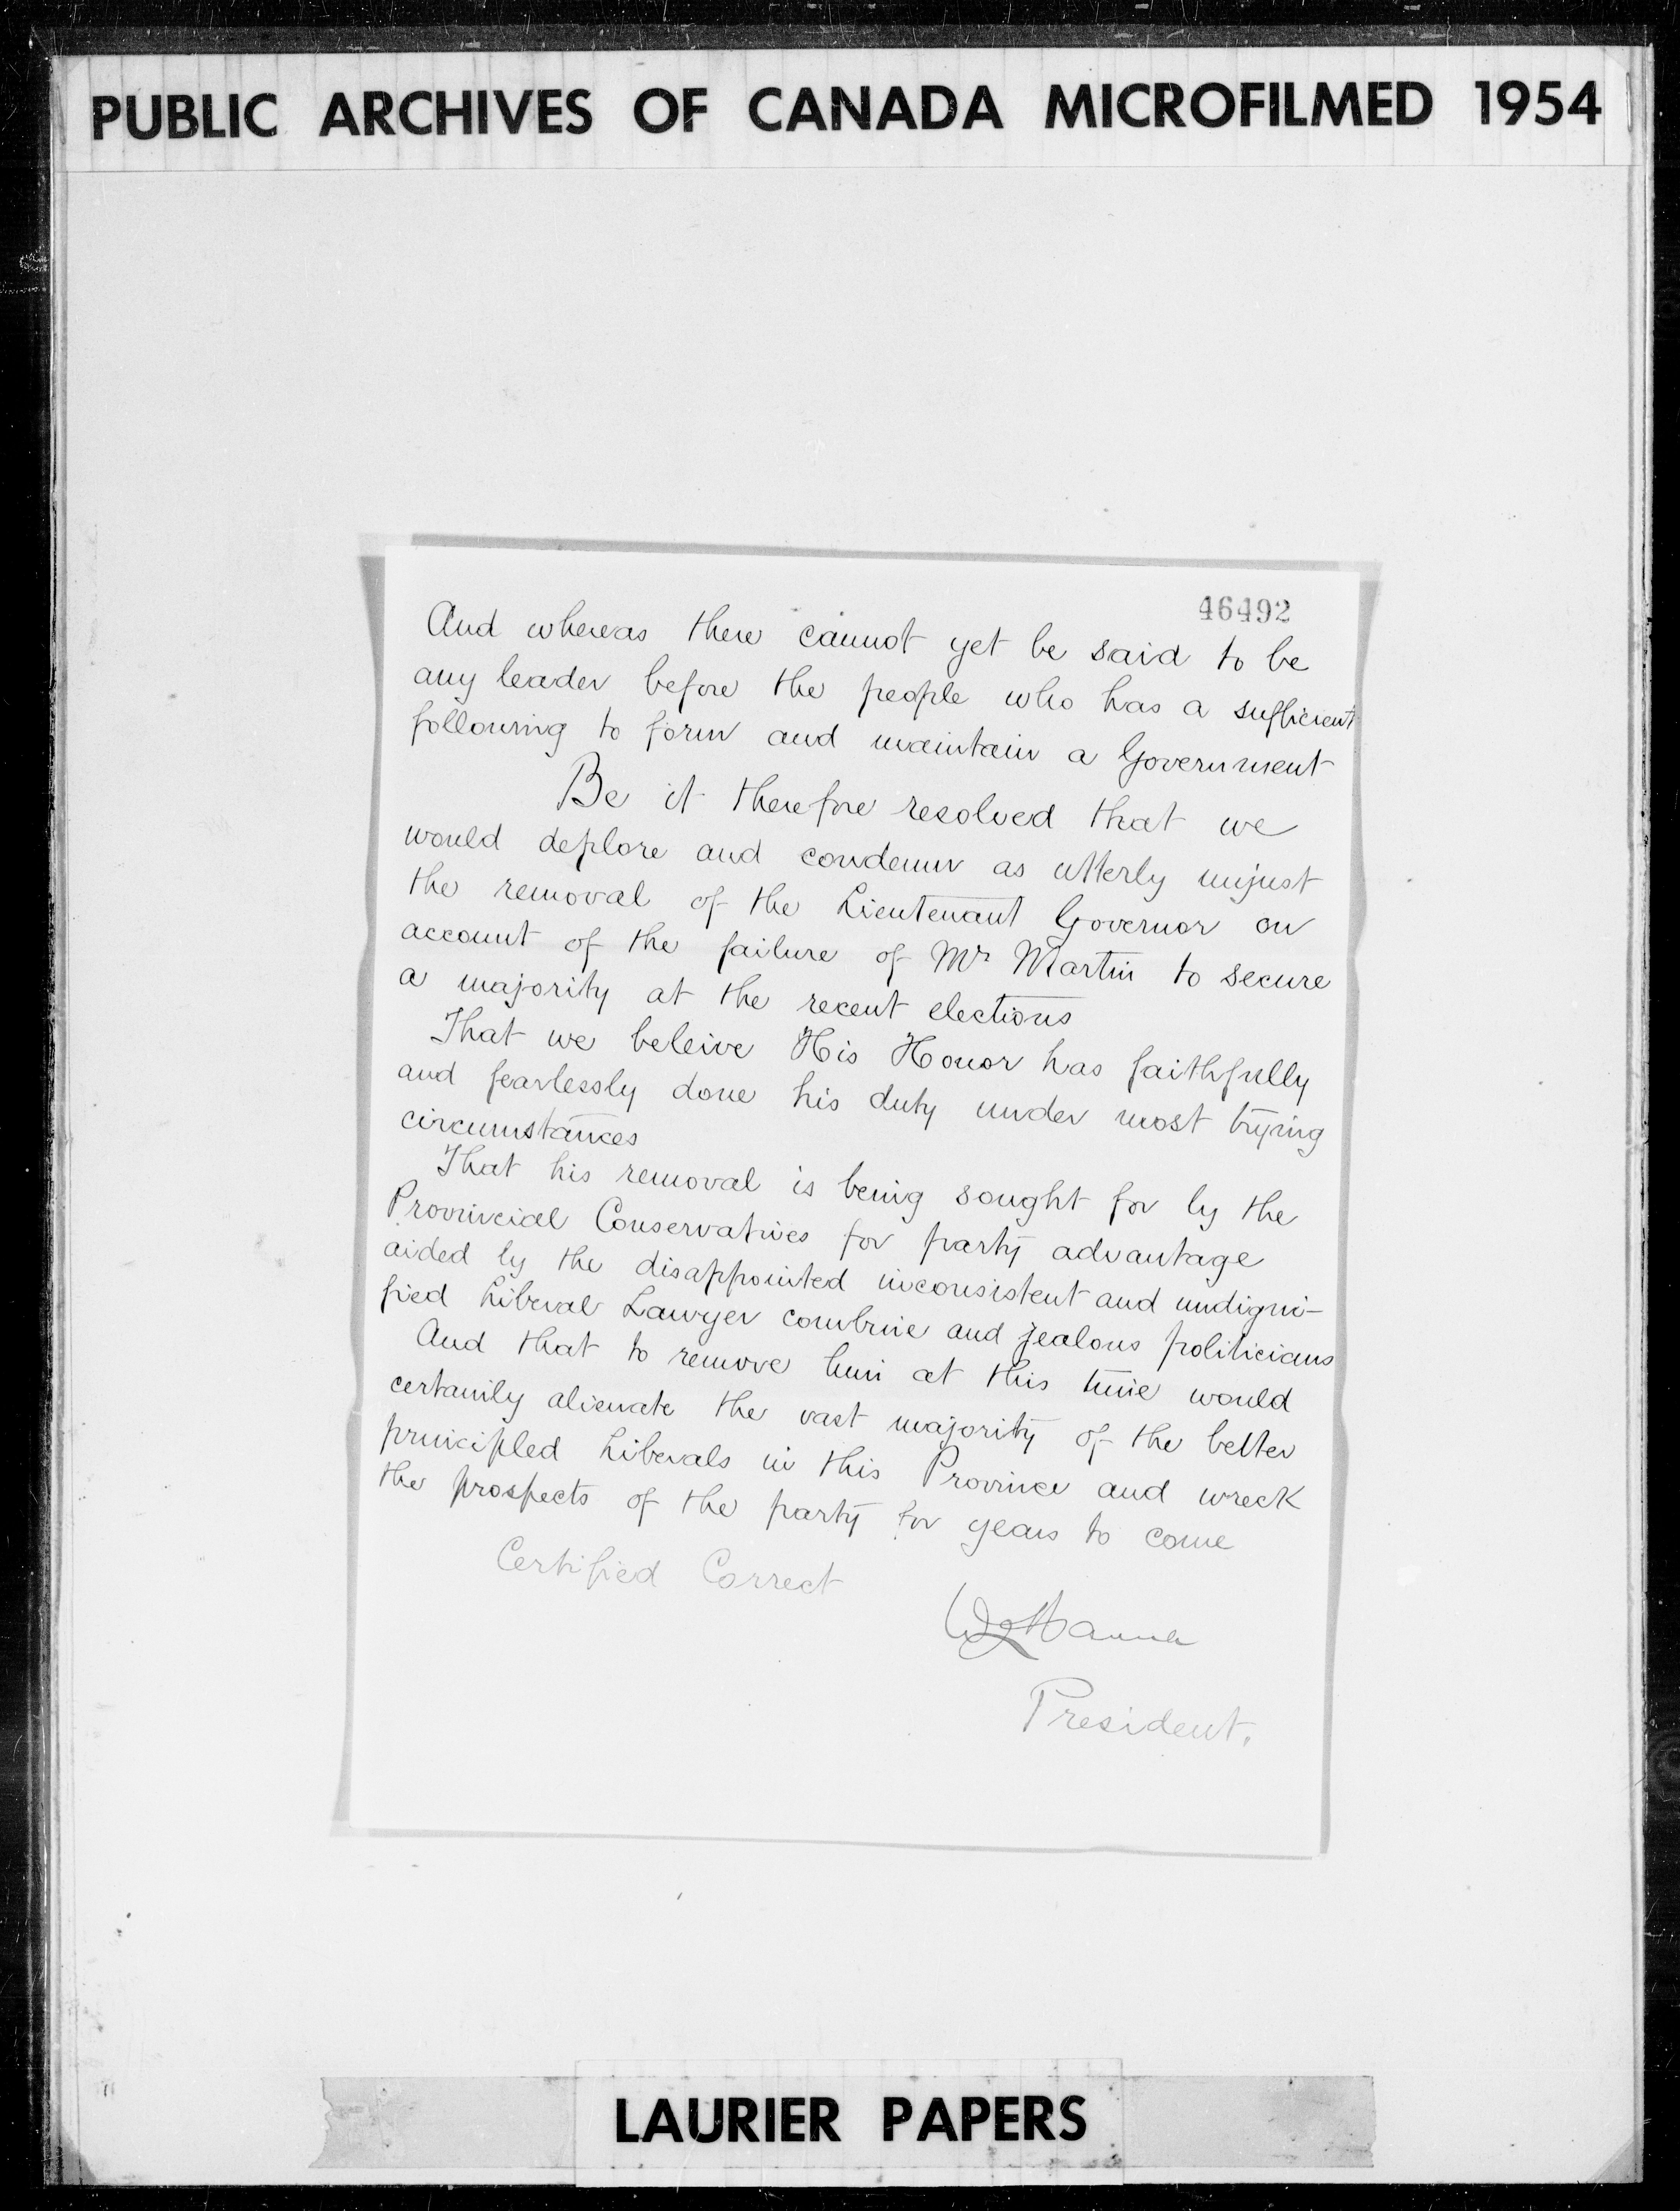 PUBLIC ARCHIVES OF CANADA MICROFILMED 1954
46492
And whereas there cannot yet be said to be
any leader before the people who has a sufficient
following to form and maintain a Government
Be it therefore resolved that we
would deplore and condemn as utterly unjust
the removal of the Lieutenant Governor on
account of the failure of Mr Martin to secure
a majority at the recent elections
That we beleive His Honor has faithfully
and fearlessly done his duty under most trying
circumstances
That his removal is being sought for by the
Provincial Conservatives for party advantage
aided by the disappointed inconsistent and undigni-
fied Liberal Lawyer combine and jealous politicians
And that to remove him at this time would
certainly alienate the vast majority of the better
principled Liberals in this Province and wreck
the prospects of the party for years to come
Certified Correct
Hanna
President.
LAURIER PAPERS